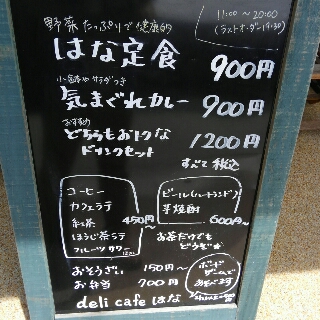 野菜たっぷりで健康的
11:00〜20:00
(ラストオーダー19:30)
はな定食 900円
小鉢やサラダつき
気まぐれカレー 900円
おすすめ
どちらもおトクな 1200円
ドリンクセット
すべて税込
コーヒー
カフェラテ
紅茶 450円〜
ほうじ茶ラテ
フルーツサワー
ビール(ハートランド)
芋焼酎 600円〜
お茶だけでも
どうぞ
おそうざい 150円〜
お弁当 700円
ボード
ゲームで
あそべます
deli cafe はな